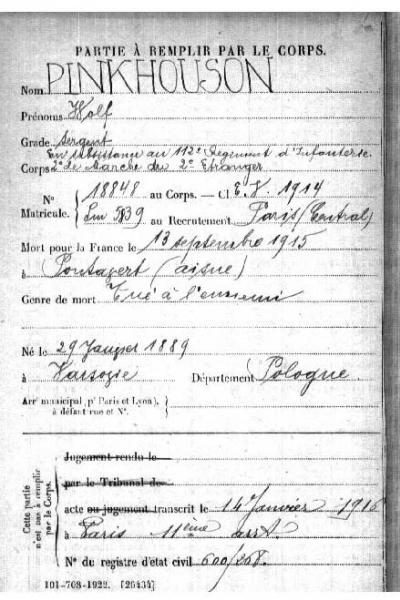 PARTIE À REMPLIR PAR LE CORPS.
Nom PINKHOUSON
Prénoms Wolf
Grade Sergent
En subsistance au 112e Régiment d'Infanterie
Corps 2e de Marche du 2e Etranger
N° Matricule. { 18848 au Corps. — Cl. E.V. 1914
5839 au Recrutement Paris (Central)
Mort pour la France le 13 septembre 1915
à Pontavert (aisne)
Genre de mort Tué à l'ennemi
Né le 29 Janvier 1889
à Varsovie Département Pologne
Arr' municipal (p' Paris et Lyon), à défaut rue et N°. }
Cette partie n'est pas à remplir par le Corps.
Jugement rendu le
par le Tribunal de
acte ou jugement transcrit le 14 Janvier 1916
à Paris 11ème arrt.
N° du registre d'état civil 600/268.
101-708-1922. [26434]